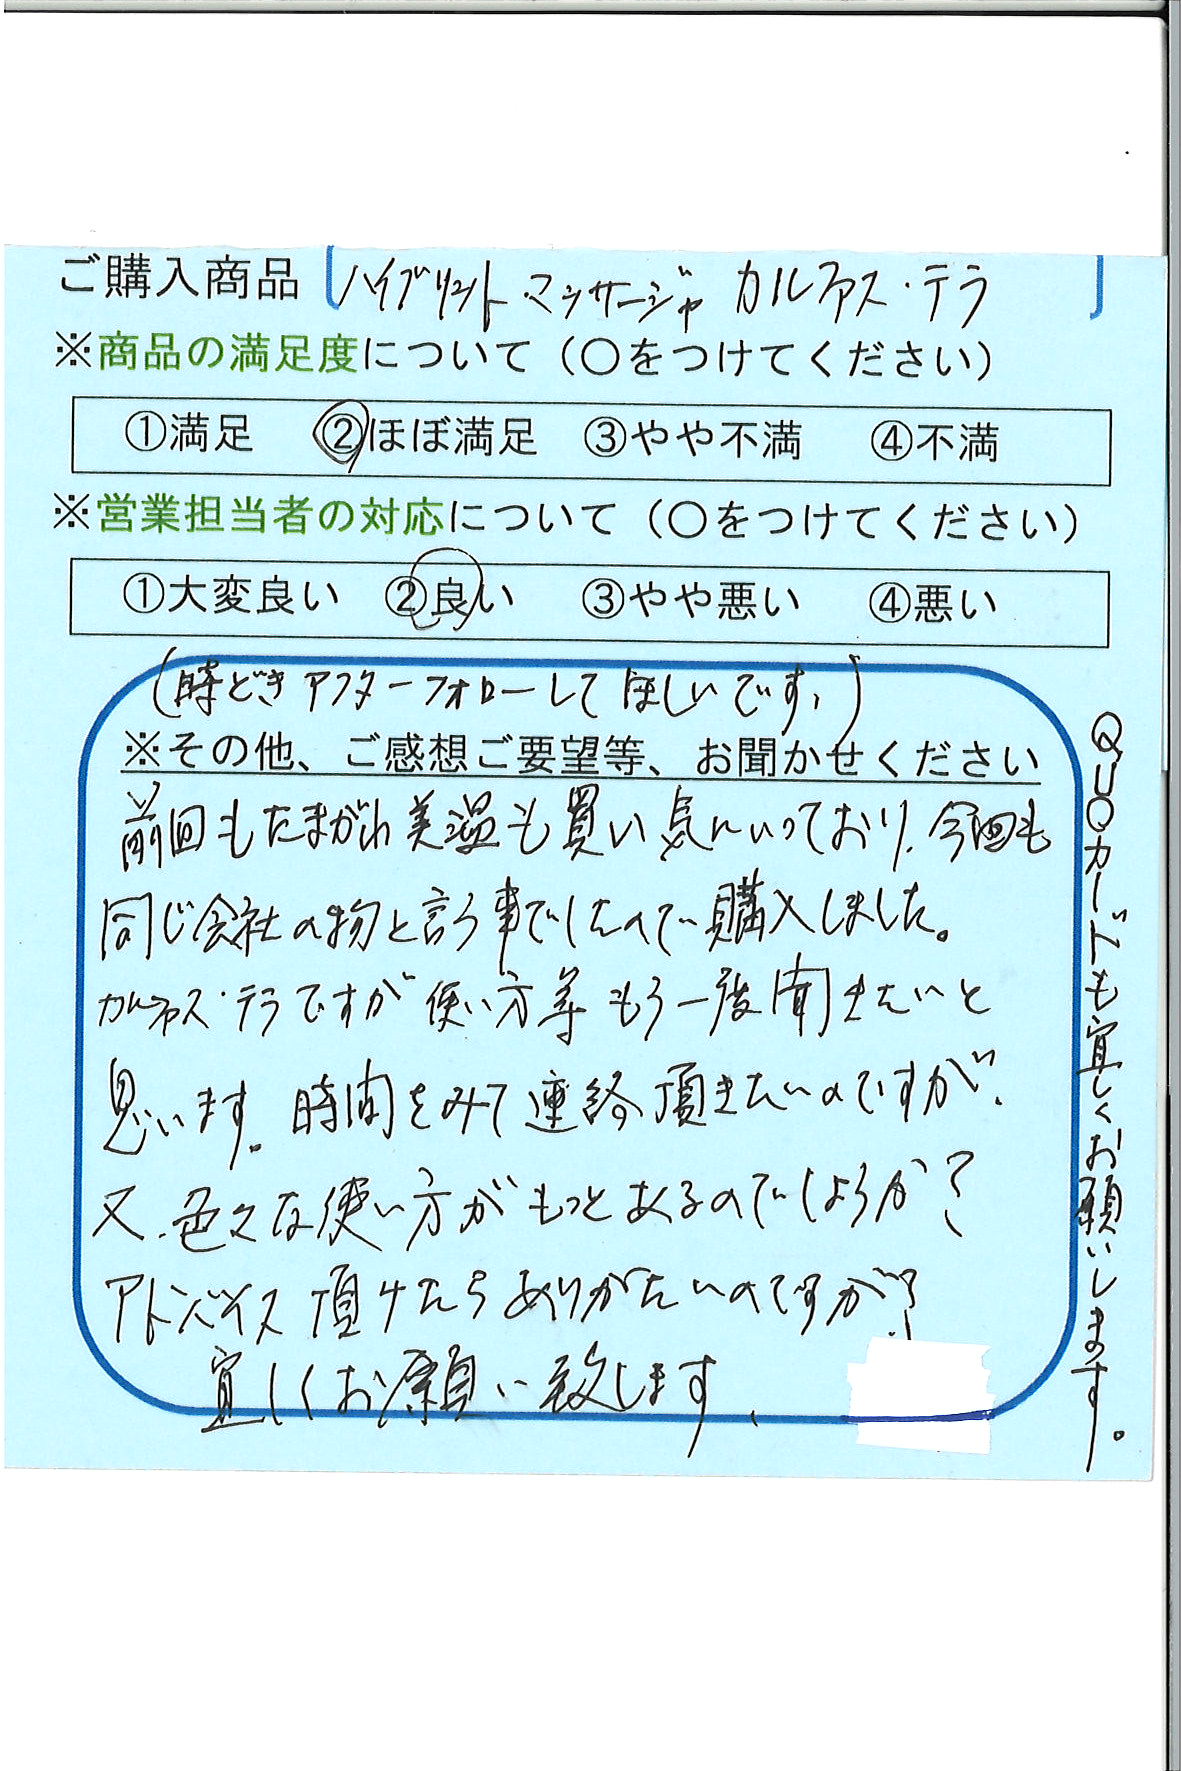 ご購入商品 ハイブリット・マッサージャ カルファス・テラ
※商品の満足度について（〇をつけてください）
①満足 ②ほぼ満足 ③やや不満 ④不満
※営業担当者の対応について（〇をつけてください）
①大変良い ②良い ③やや悪い ④悪い
(時どきアフターフォローしてほしいです。)
※その他、ご感想ご要望等、お聞かせください
前回もたまがわ美湿も買い気にいっており、今回も
同じ会社の物と言う事でしたので購入しました。
カルファス・テラですが使い方等もう一度聞きたいと
思います。時間をみて連絡頂きたいのですが、
又、色々な使い方がもっとあるのでしょうか?
アドバイス頂けたらありがたいのですが?
宜しくお願い致します、
QUOカードも宜しくお願いします。